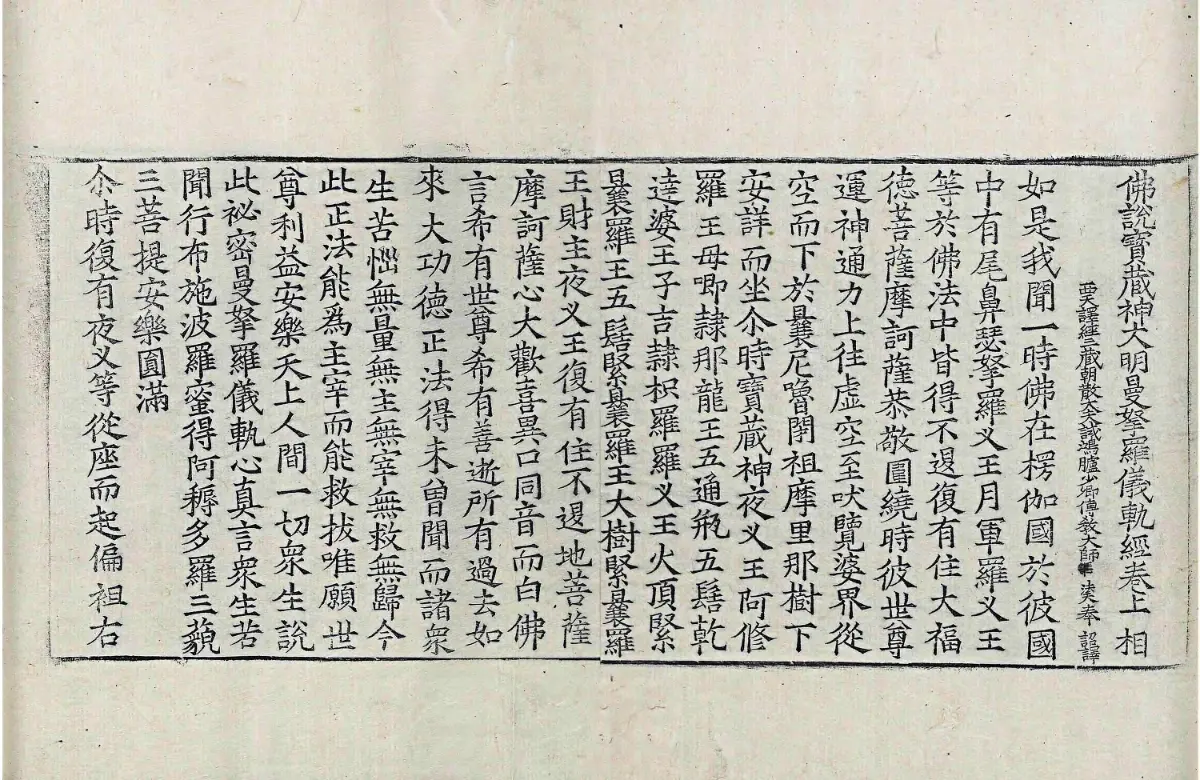 佛說寶藏神大明曼拏羅儀軌經卷上 相
西天譯經三藏朝散大夫試鴻臚少卿傳教大師臣法天奉 詔譯
如是我聞一時佛在楞伽國於彼國
中有尾鼻瑟拏羅义王月軍羅义王
等於佛法中皆得不退復有住大福
德菩薩摩訶薩恭敬圍繞時彼世尊
運神通力上往虛空至吠覽婆界從
空而下於曩尼嚕閉祖摩里那樹下
安詳而坐尒時寶藏神夜义王阿修
羅王母唧隷那龍王五通瓶五髻乾
達婆王子吉隷枳羅羅义王火頂緊
曩羅王五髻緊曩羅王大樹緊曩羅
王財主夜义王復有住不退地菩薩
摩訶薩心大歡喜異口同音而白佛
言希有世尊希有善逝所有過去如
來大功德正法得未曾聞而諸衆
生苦惱無量無主無宰無救無歸今
此正法能爲主宰而能救拔唯願世
尊利益安樂天上人間一切衆生說
此祕密曼拏羅儀軌心真言衆生若
聞行布施波羅蜜得阿耨多羅三藐
三菩提安樂圓滿
尒時復有夜义等從座而起偏袒右